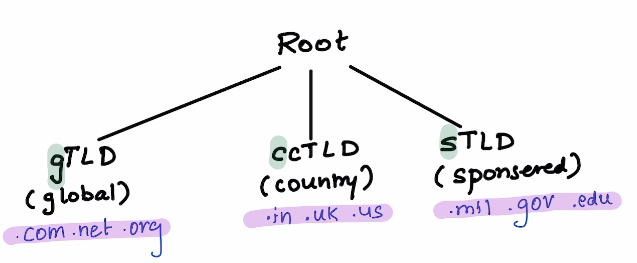 Root
gTLD
(global)
.com .net .org
ccTLD
(country)
.in .uk .us
sTLD
(sponsered)
.mil .gov .edu